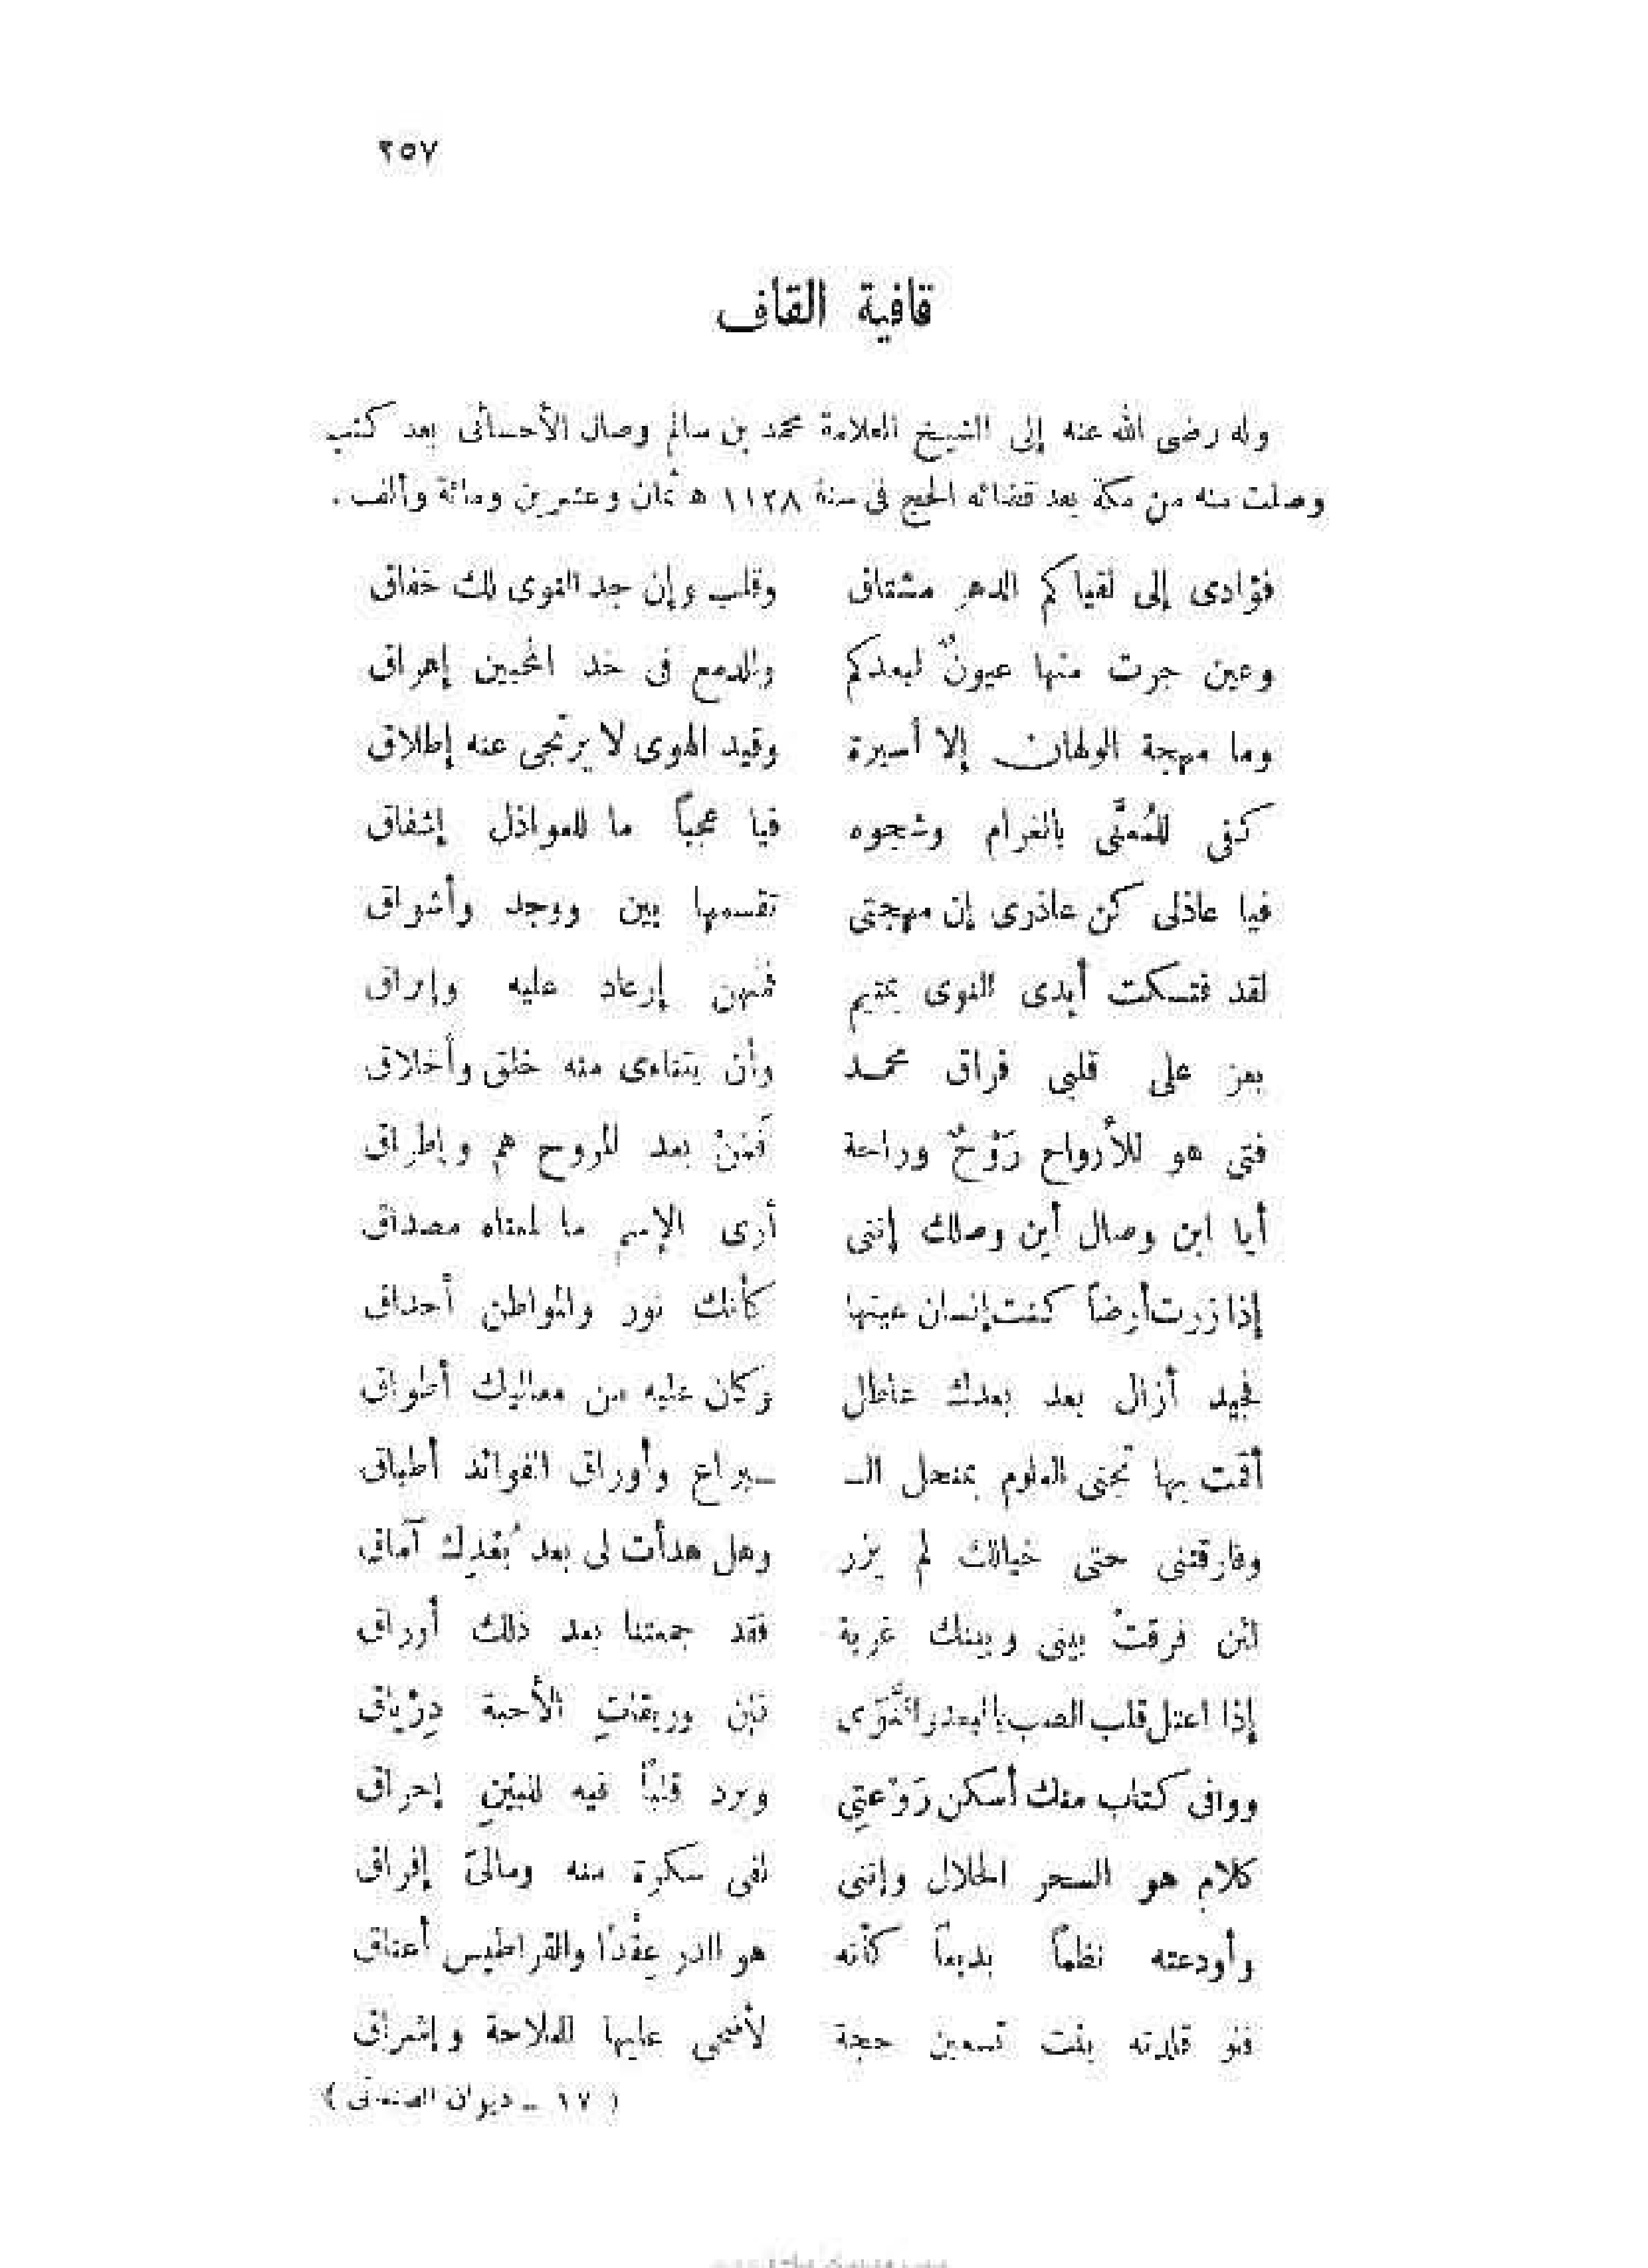 ٢٥٧
قافية القاف
وله رضى الله عنه إلى الشيخ العلامة محمد بن سالم وصال الأحسائى بعد كتب
وصلت منه من مكة بعد قضائه الحج فى سنة ١١٢٨ ه ثمان وعشرين ومائة وألف .
فؤادى إلى لقياكم الدهر مشتاق وقلب وإن جد النوى لك خفاق
وعين جرت منها عيونٌ لبعدكم والدمع فى خد المحبين إهراق
وما مهجة الولهان إلا أسيرة وقيد الهوى لا يرتجى عنه إطلاق
كفى للمُعنَّى بالغرام وشجوه فيا عجباً ما للعواذل إشفاق
فيا عاذلى كن عاذرى إن مهجتى تقسمها بين ووجد وأشواق
لقد فتكت أيدى النوى بمتيم فمنهن إرعاد عليه وإبراق
يعز على قلبى فراق محمد وأن يتناءى منه خلق وأخلاق
فتى هو للأرواح رَوْحٌ وراحة فَمَنْ بعد للروح هم وإطراق
أيا ابن وصال أين وصلك إننى أرى الإسم ما لمعناه مصداق
إذا زرت أرضاً كنت إنسان عينها كأنك نور والمواطن أحداق
فجيد أزال بعد بعدك عاطل وكان عليه من معاليك أطواق
أقمت بها تجنى العلوم بمنحل الـ ـيراع وأوراق الفوائد أطباق
وفارقتنى حتى خيالك لم يزر وهل هدأت لى بعد بُعْدِك آماق
لئن فرقتْ بينى وبينك غربة فقد جمعتنا بعد ذلك أوراق
إذا اعتل قلب الصب بالبعد والنَّوَى فإن وريقاتِ الأحبة دِرْياق
ووافى كتاب منك أسكن رَوْعتِي وبرد قلباً فيه للبيْنِ إحراق
كلام هو السحر الحلال وإننى لفى سكرة منه ومالىَ إفراق
وأودعته نظماً بديعاً كأنه هو الدر عِقْدًا والقراطيس أعناق
فلو قلدته بنت تسعين حجة لأضحى عليها للملاحة وإشراق
( ١٧ ـ ديوان الصنعانى )